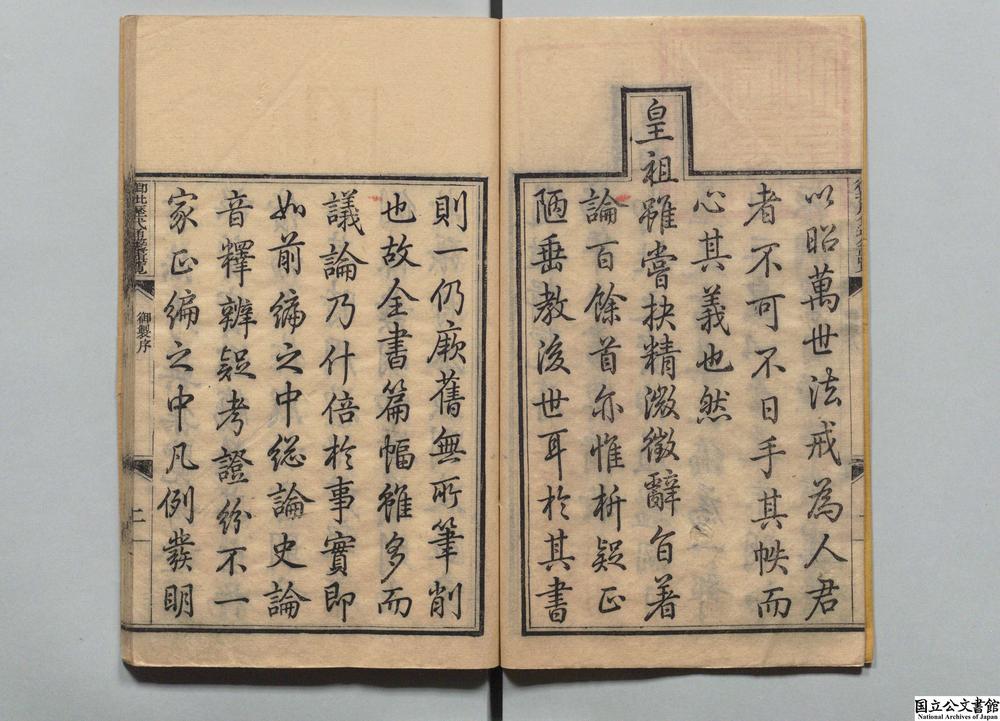 以昭萬世法戒為人君
者不可不日手其帙而
心其義也然
皇祖雖嘗抉精微徵辭自著
論百餘首亦惟析疑正
陋垂教後世耳於其書
則一仍厥舊無所筆削
也故全書篇幅雖多而
議論乃什倍於事實即
如前編之中總論史論
音釋辨疑考證紛不一
家正編之中凡例發明
御批歷代通鑑輯覽
御製序
二
国立公文書館
National Archives of Japan